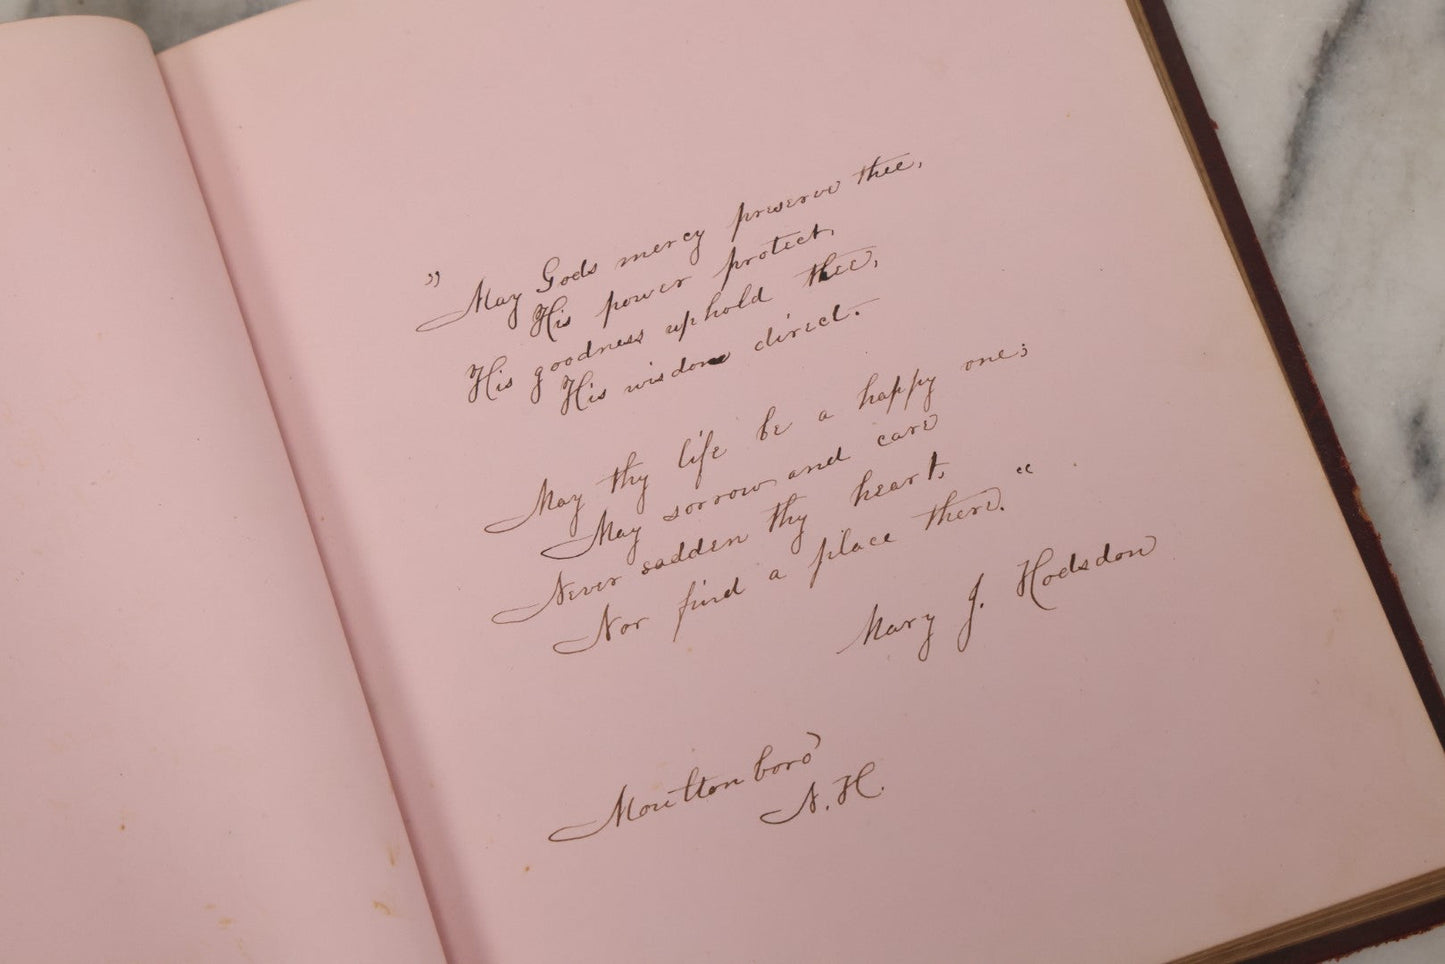 " May Gods mercy preserve thee,
His power protect,
His goodness uphold thee,
His wisdom direct.
May thy life be a happy one;
May sorrow and care
Never sadden thy heart,
Nor find a place there. "
Mary J. Hodsdon
Moultonboro'
N. H.